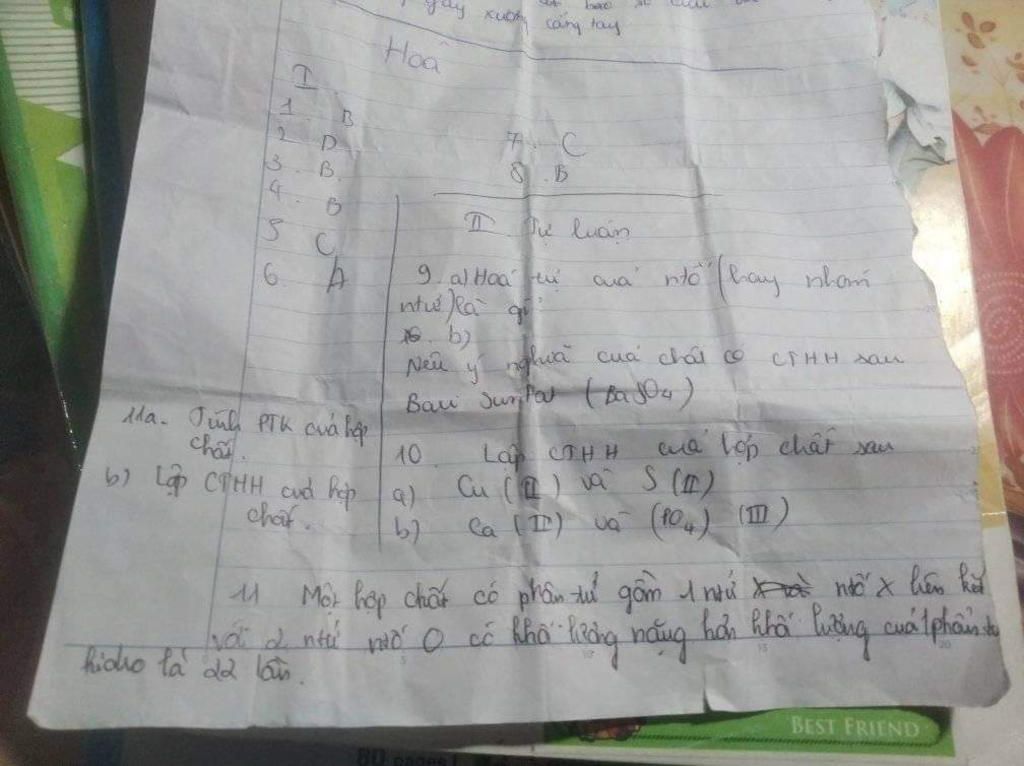 gãy xương
cẳng tay
Hoá
I
1. B
2 D
3. B.
4. B
5 C
6. A
7. C
8. B
II. Tự luận
9. a) Hoá trị của ntố (hay nhóm
ntử) là gì
b)
Nêu ý nghĩa của chất có CTHH sau
Bari sunfat (BaSO4)
10. Lập CTHH của hợp chất sau
a) Cu (II) và S (II)
b) Ca (II) và (PO4) (III)
11a. Tính PTK của hợp
chất.
b) Lập CTHH của hợp
chất.
11 Một hợp chất có phân tử gồm 1 ntử ntố X liên kết
với 2 ntử ntố O có khối lượng nặng hơn khối lượng của 1 phân tử
hidro là 22 lần.
BEST FRIEND
80 pages